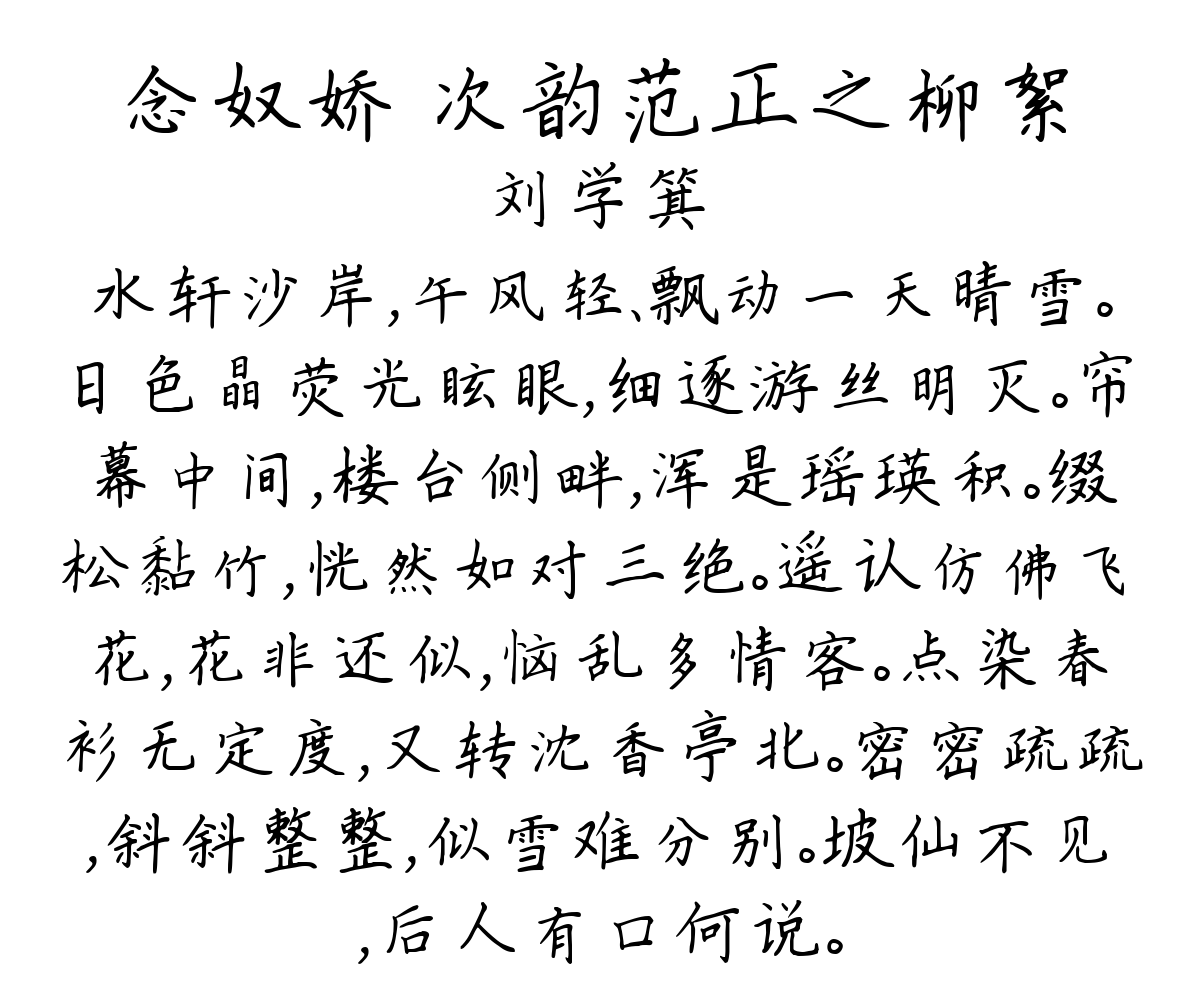 念奴娇 次韵范正之柳絮
刘学箕
水轩沙岸,午风轻、飘动一天晴雪。
日色晶荧光眩眼,细逐游丝明灭。帘
幕中间,楼台侧畔,浑是瑶瑛积。缀
松黏竹,恍然如对三绝。遥认仿佛飞
花,花非还似,恼乱多情客。点染春
衫无定度,又转沈香亭北。密密疏疏
,斜斜整整,似雪难分别。坡仙不见
,后人有口何说。